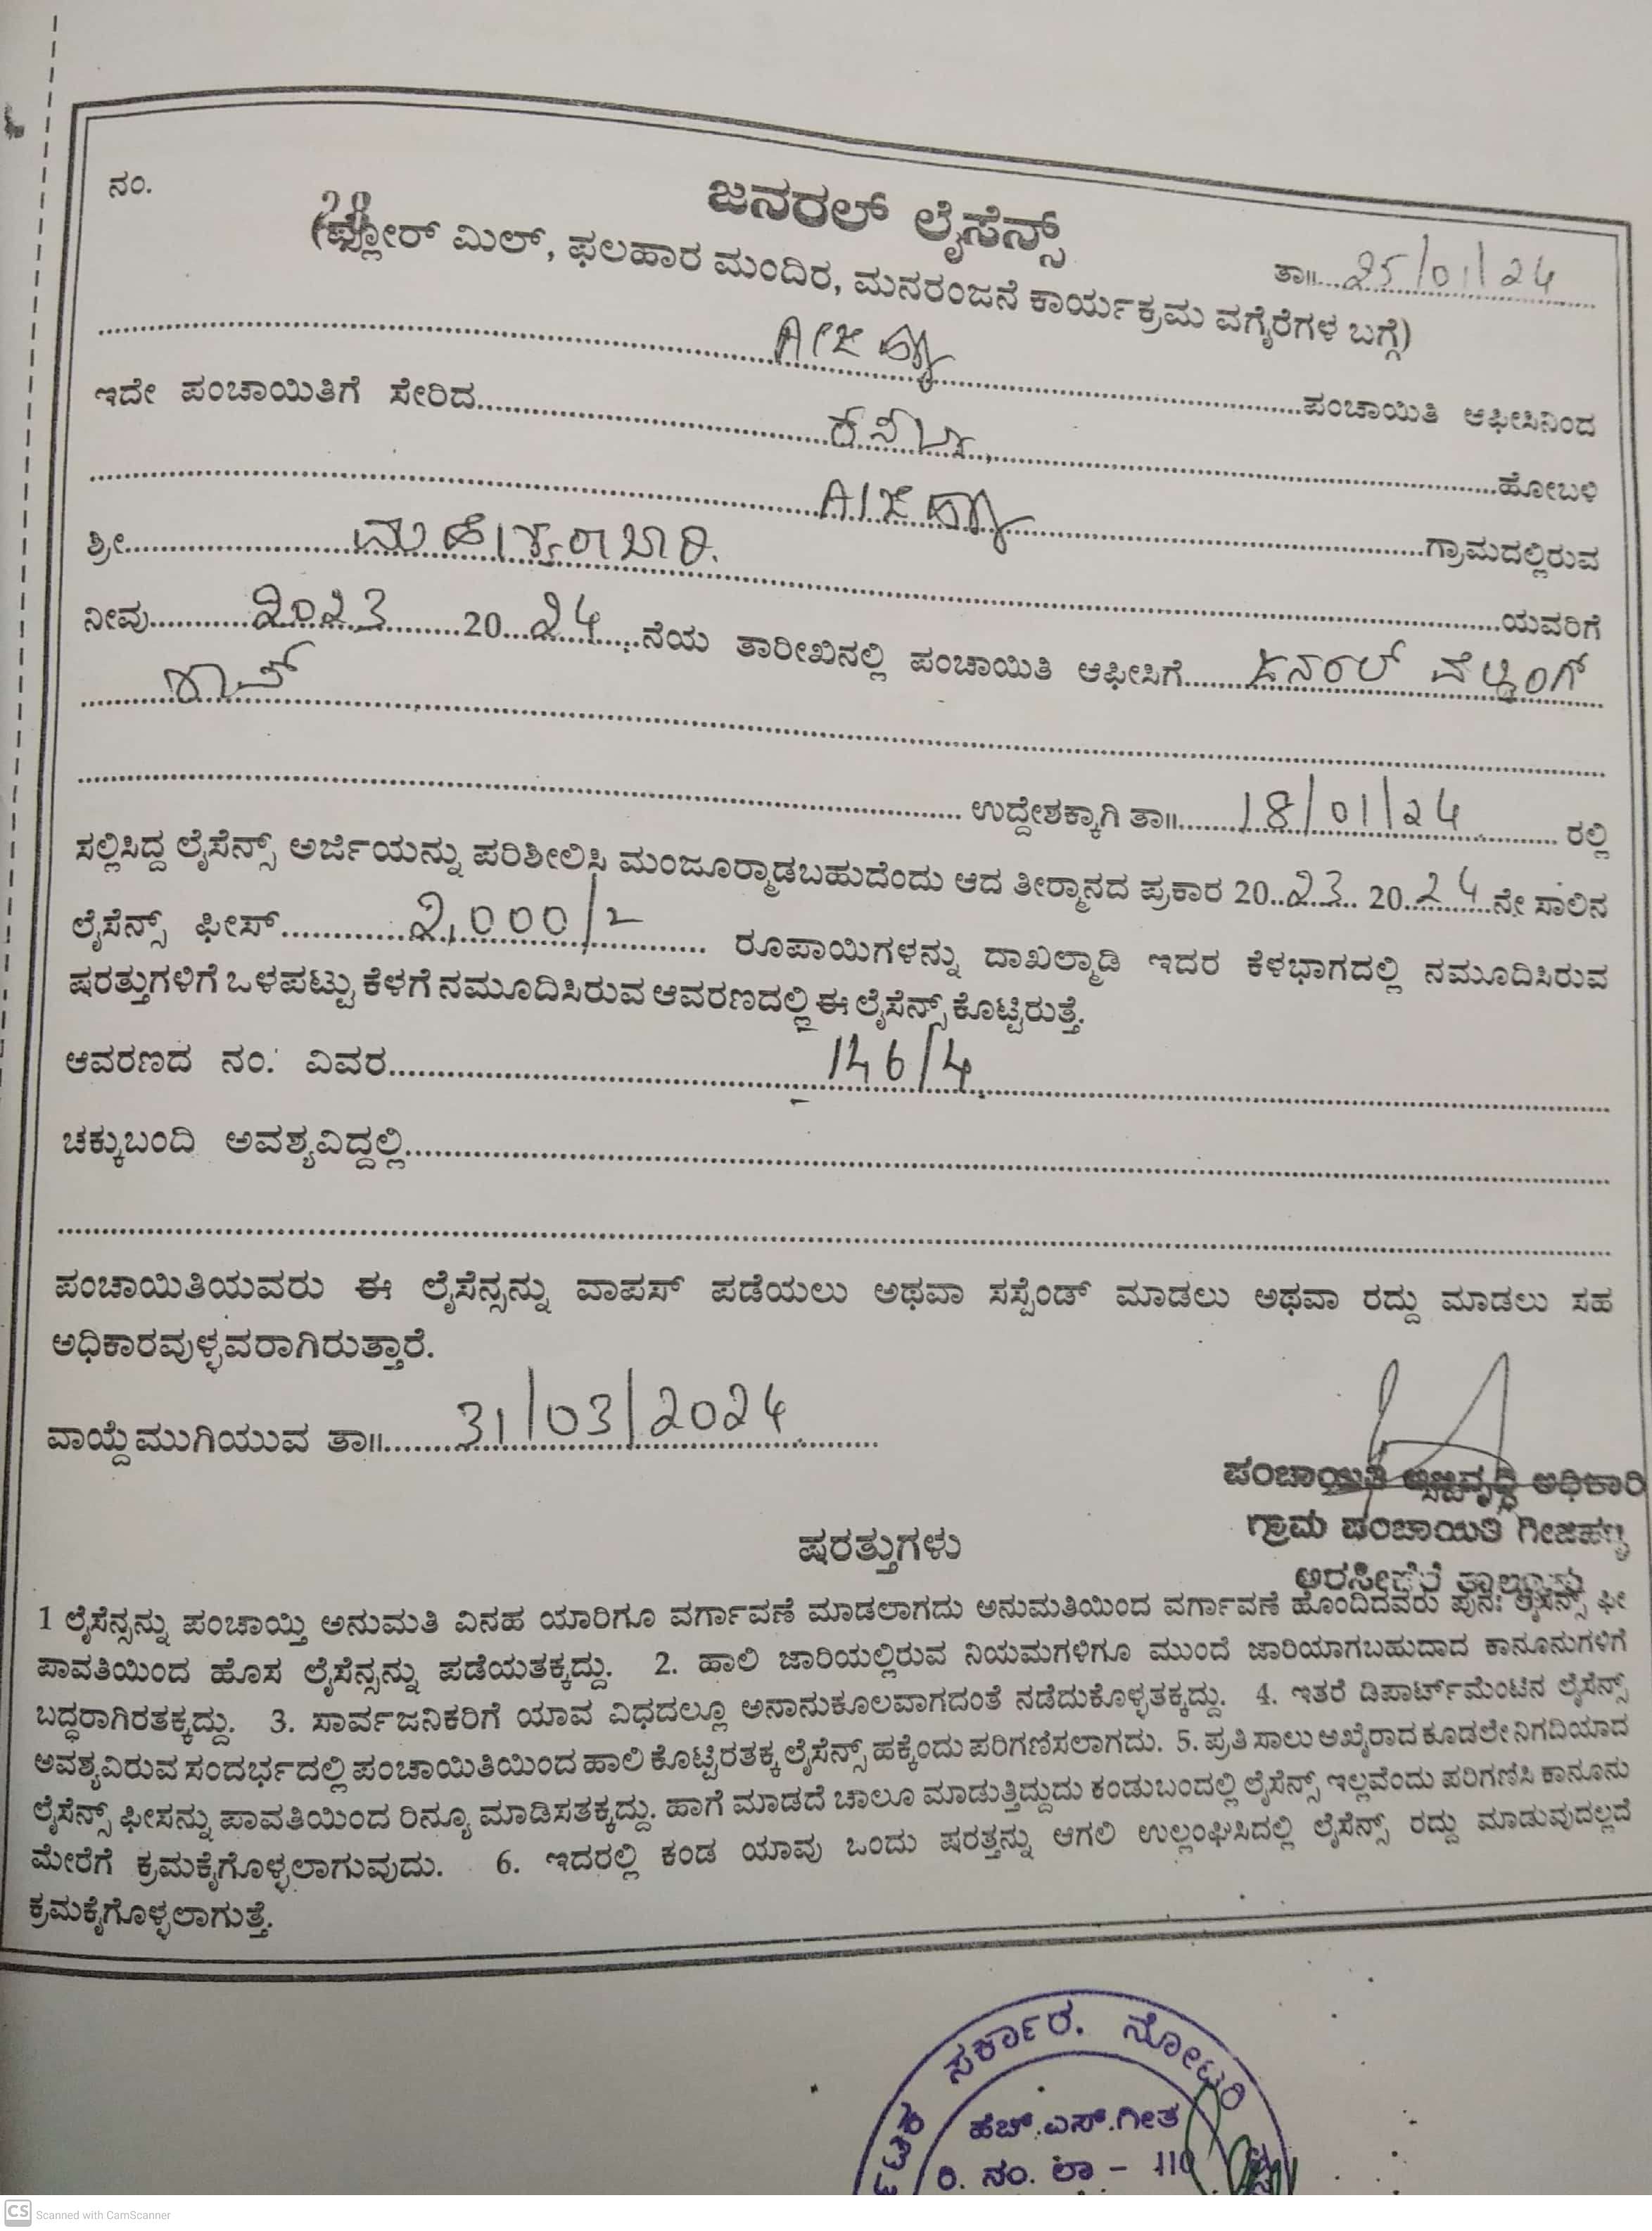 ನಂ.
ಜನರಲ್ ಲೈಸೆನ್ಸ್
(ಫ್ಲೋರ್ ಮಿಲ್, ಫಲಹಾರ ಮಂದಿರ, ಮನರಂಜನೆ ಕಾರ್ಯಕ್ರಮ ವಗೈರೆಗಳ ಬಗ್ಗೆ)
ತಾ॥...25/01/24
ಪಂಚಾಯಿತಿ ಆಫೀಸಿನಿಂದ
ಇದೇ ಪಂಚಾಯಿತಿಗೆ ಸೇರಿದ ಹೋಬಳಿ
ಗ್ರಾಮದಲ್ಲಿರುವ
ಶ್ರೀ ಯವರಿಗೆ
ನೀವು 2023 20 24 ನೆಯ ತಾರೀಖಿನಲ್ಲಿ ಪಂಚಾಯಿತಿ ಆಫೀಸಿಗೆ ಜನರಲ್ ವೆಲ್ಡಿಂಗ್
ಶಾಪ್
ಉದ್ದೇಶಕ್ಕಾಗಿ ತಾ॥ 18/01/24 ರಲ್ಲಿ
ಸಲ್ಲಿಸಿದ್ದ ಲೈಸೆನ್ಸ್ ಅರ್ಜಿಯನ್ನು ಪರಿಶೀಲಿಸಿ ಮಂಜೂರ್ಮಾಡಬಹುದೆಂದು ಆದ ತೀರ್ಮಾನದ ಪ್ರಕಾರ 20..23.. 20..24 ನೇ ಸಾಲಿನ
ಲೈಸೆನ್ಸ್ ಫೀಸ್ 2,000/- ರೂಪಾಯಿಗಳನ್ನು ದಾಖಲ್ಮಾಡಿ ಇದರ ಕೆಳಭಾಗದಲ್ಲಿ ನಮೂದಿಸಿರುವ
ಷರತ್ತುಗಳಿಗೆ ಒಳಪಟ್ಟು ಕೆಳಗೆ ನಮೂದಿಸಿರುವ ಆವರಣದಲ್ಲಿ ಈ ಲೈಸೆನ್ಸ್ ಕೊಟ್ಟಿರುತ್ತೆ.
ಆವರಣದ ನಂ. ವಿವರ 146/4
ಚಕ್ಕುಬಂದಿ ಅವಶ್ಯವಿದ್ದಲ್ಲಿ
ಪಂಚಾಯಿತಿಯವರು ಈ ಲೈಸೆನ್ಸನ್ನು ವಾಪಸ್ ಪಡೆಯಲು ಅಥವಾ ಸಸ್ಪೆಂಡ್ ಮಾಡಲು ಅಥವಾ ರದ್ದು ಮಾಡಲು ಸಹ
ಅಧಿಕಾರವುಳ್ಳವರಾಗಿರುತ್ತಾರೆ.
ವಾಯ್ದೆ ಮುಗಿಯುವ ತಾ॥ 31/03/2024
ಪಂಚಾಯಿತಿ ಅಭಿವೃದ್ಧಿ ಅಧಿಕಾರಿ
ಗ್ರಾಮ ಪಂಚಾಯಿತಿ ಗೀಜಿಹಳ್ಳಿ
ಅರಸೀಕೆರೆ ತಾಲ್ಲೂಕು
ಷರತ್ತುಗಳು
1 ಲೈಸೆನ್ಸನ್ನು ಪಂಚಾಯ್ತಿ ಅನುಮತಿ ವಿನಹ ಯಾರಿಗೂ ವರ್ಗಾವಣೆ ಮಾಡಲಾಗದು ಅನುಮತಿಯಿಂದ ವರ್ಗಾವಣೆ ಹೊಂದಿದವರು ಪುನಃ ಲೈಸೆನ್ಸ್ ಫೀ
ಪಾವತಿಯಿಂದ ಹೊಸ ಲೈಸೆನ್ಸನ್ನು ಪಡೆಯತಕ್ಕದ್ದು. 2. ಹಾಲಿ ಜಾರಿಯಲ್ಲಿರುವ ನಿಯಮಗಳಿಗೂ ಮುಂದೆ ಜಾರಿಯಾಗಬಹುದಾದ ಕಾನೂನುಗಳಿಗೆ
ಬದ್ಧರಾಗಿರತಕ್ಕದ್ದು. 3. ಸಾರ್ವಜನಿಕರಿಗೆ ಯಾವ ವಿಧದಲ್ಲೂ ಅನಾನುಕೂಲವಾಗದಂತೆ ನಡೆದುಕೊಳ್ಳತಕ್ಕದ್ದು. 4. ಇತರೆ ಡಿಪಾರ್ಟ್‌ಮೆಂಟಿನ ಲೈಸೆನ್ಸ್
ಅವಶ್ಯವಿರುವ ಸಂದರ್ಭದಲ್ಲಿ ಪಂಚಾಯಿತಿಯಿಂದ ಹಾಲಿ ಕೊಟ್ಟಿರತಕ್ಕ ಲೈಸೆನ್ಸ್ ಹಕ್ಕೆಂದು ಪರಿಗಣಿಸಲಾಗದು. 5. ಪ್ರತಿ ಸಾಲು ಅಖೈರಾದ ಕೂಡಲೇ ನಿಗದಿಯಾದ
ಲೈಸೆನ್ಸ್ ಫೀಸನ್ನು ಪಾವತಿಯಿಂದ ರಿನ್ಯೂ ಮಾಡಿಸತಕ್ಕದ್ದು. ಹಾಗೆ ಮಾಡದೆ ಚಾಲೂ ಮಾಡುತ್ತಿದ್ದುದು ಕಂಡುಬಂದಲ್ಲಿ ಲೈಸೆನ್ಸ್ ಇಲ್ಲವೆಂದು ಪರಿಗಣಿಸಿ ಕಾನೂನು
ಮೇರೆಗೆ ಕ್ರಮಕೈಗೊಳ್ಳಲಾಗುವುದು. 6. ಇದರಲ್ಲಿ ಕಂಡ ಯಾವು ಒಂದು ಷರತ್ತನ್ನು ಆಗಲಿ ಉಲ್ಲಂಘಿಸಿದಲ್ಲಿ ಲೈಸೆನ್ಸ್ ರದ್ದು ಮಾಡುವುದಲ್ಲದೆ
ಕ್ರಮಕೈಗೊಳ್ಳಲಾಗುತ್ತೆ.
ಸರ್ಕಾರ. ನೋಟರಿ
ಹೆಚ್.ಎಸ್.ಗೀತ
ರಿ. ನಂ. ಲಾ - 110
CS Scanned with CamScanner